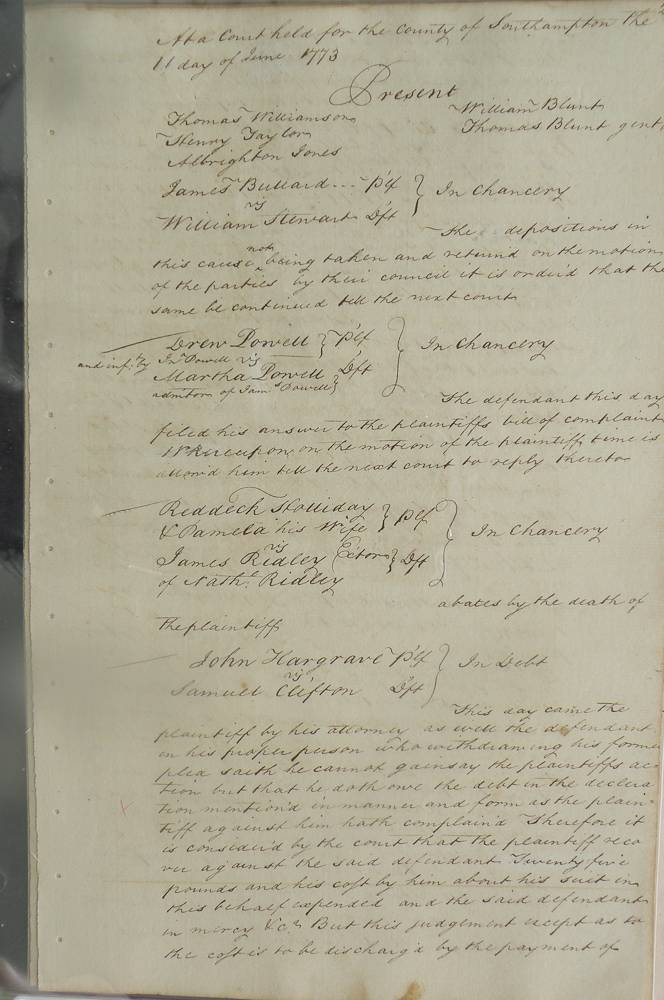 At a Court held for the County of Southampton the
11 day of June 1773
Present
Thomas Williamson
William Blunt
Henry Taylor
Thomas Blunt gent
Albrighton Jones
James Bullard --- Plf } In Chancery
vs
William Stewart Dft
The depositions in
this cause not being taken and returnd on the motion
of the parties by their council it is orderd that the
same be continued till the next court
Drew Powell } Plf } In Chancery
and inft. by Jno Powell vs
Martha Powell } Dft
admtors of Jams Powell
The defendant this day
filed his answer to the plaintiffs bill of complaint
Whereupon on the motion of the plaintiff time is
allowd him till the next court to reply thereto
Reddeck Holliday
& Pamela his Wife } Plf } In Chancery
vs
James Ridley Ector } Dft
of Nathl. Ridley
abates by the death of
the plaintiff
John Hargrave Plf } In Debt
vs
Samuel Clifton Dft
This day came the
plaintiff by his attorney as well the defendant
in his proper person who withdrawing his former
plea saith he cannot gainsay the plaintiffs ac-
tion but that he doth owe the debt in the declera-
tion mention'd in manner and form as the plain-
tiff against him hath complain'd Therefore it
is consider'd by the court that the plaintiff reco-
ver against the said defendant Twenty five
pounds and his cost by him about his suit in
this behalf expended and the said defendant
in mercy &c. But this judgement except as to
the cost is to be discharg'd by the payment of